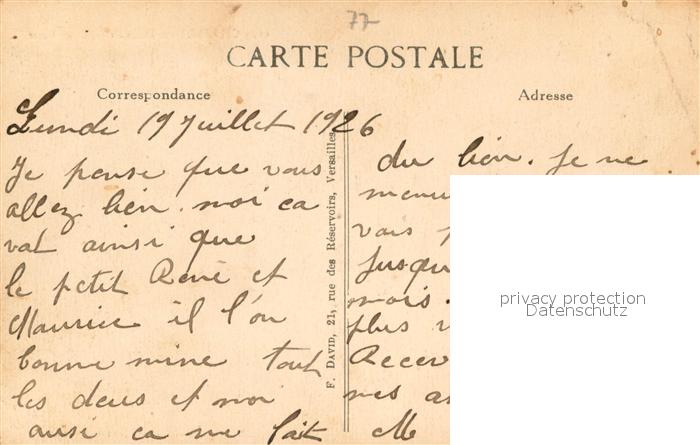 77
CARTE POSTALE
Correspondance
Adresse
Lundi 19 Juillet 1926
Je pense que vous
allez bien. moi ca
vat ainsi que
le petit René et
Maurice il l'on
bonne mine tout
les deus et moi
ausi ca me fait
F. DAVID, 21, rue des Réservoirs, Versailles
du bien. Je ne
vais
Jusqu
mois.
plus
Recev
mes
M
privacy protection
Datenschutz